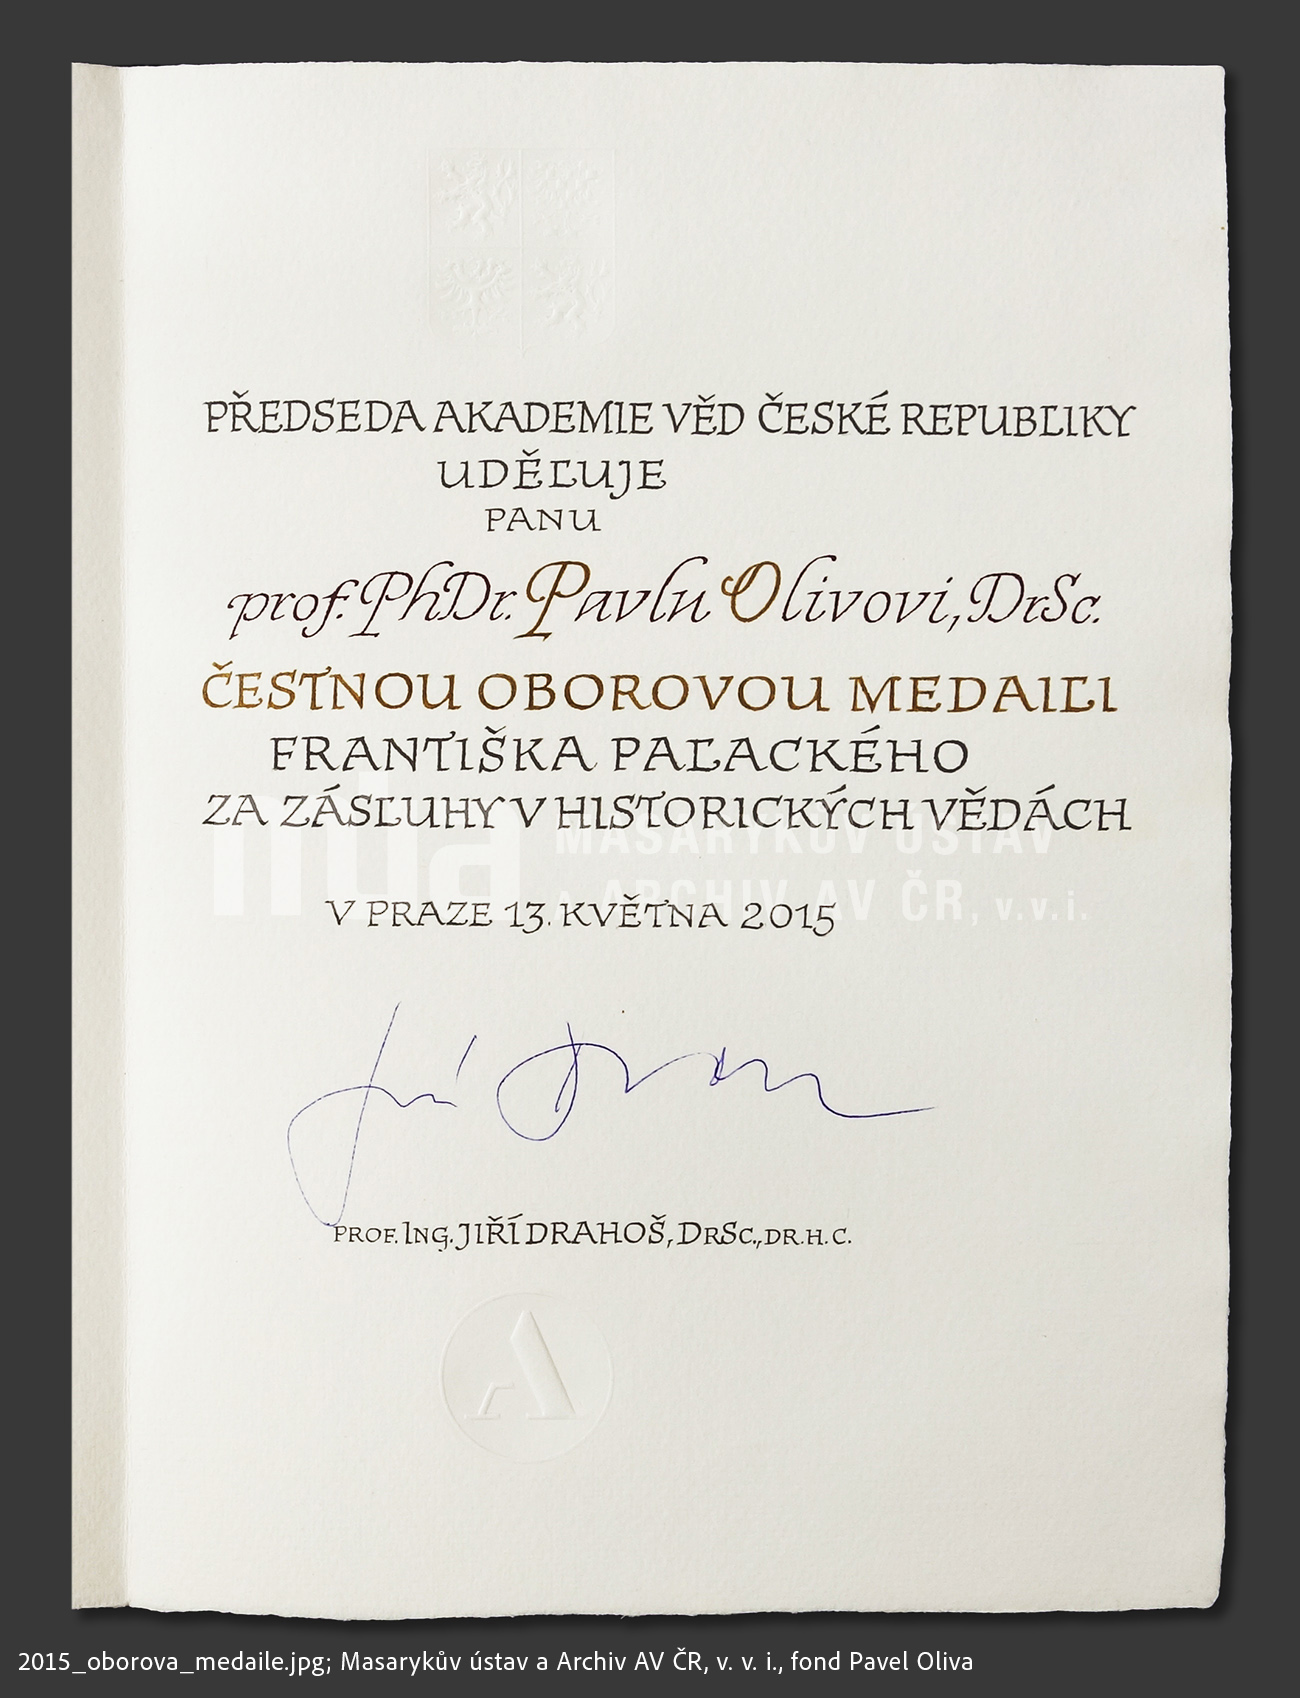 PŘEDSEDA AKADEMIE VĚD ČESKÉ REPUBLIKY
UDĚLUJE
PANU
prof. PhDr. Pavlu Olivovi, DrSc.
ČESTNOU OBOROVOU MEDAILI
FRANTIŠKA PALACKÉHO
ZA ZÁSLUHY V HISTORICKÝCH VĚDÁCH
mua MASARYKŮV ÚSTAV
A ARCHIV AV ČR, v.v.i.
V PRAZE 13. KVĚTNA 2015
PROF. ING. JIŘÍ DRAHOŠ, DRSC., DR. H. C.
A
2015_oborova_medaile.jpg; Masarykův ústav a Archiv AV ČR, v. v. i., fond Pavel Oliva